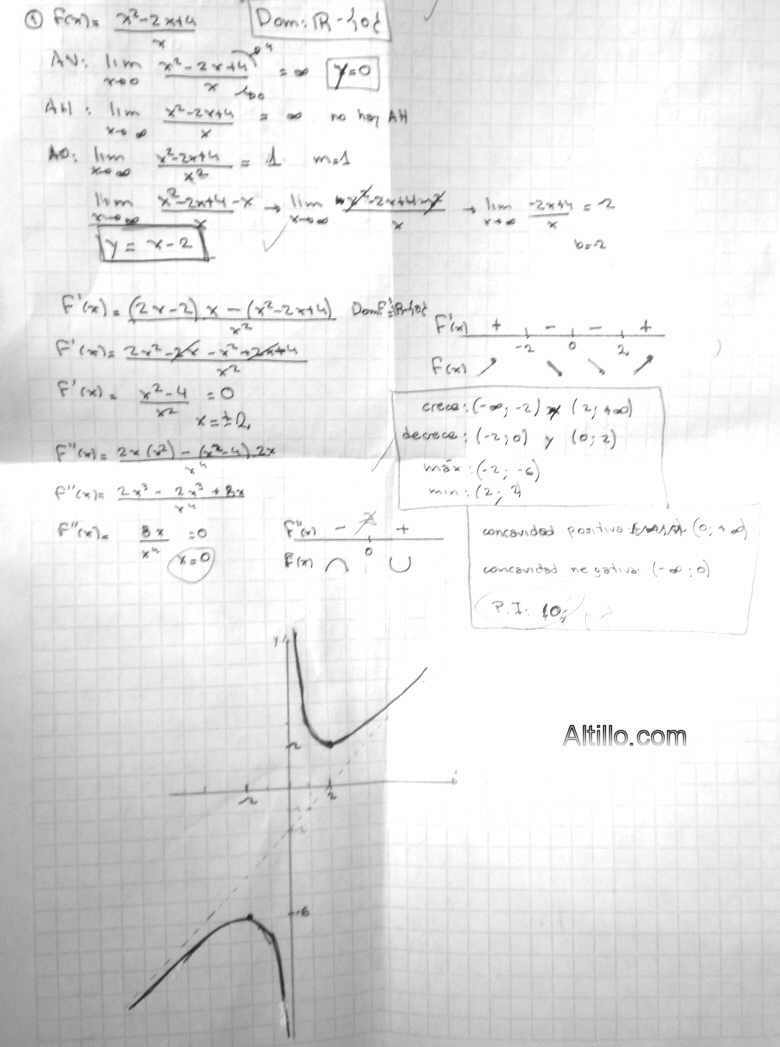 ① F(x)= x²-2x+4 / x   Dom: R-{0}
AV: lim x→0 x²-2x+4 / x = ∞   y=0
AH: lim x→∞ x²-2x+4 / x = ∞ no hay AH
AO: lim x→∞ x²-2x+4 / x² = 1 m=1
lim x→∞ x²-2x+4 / x - x → lim x→∞ x²-2x+4-x² / x → lim x→∞ -2x+4 / x = -2
b=-2
y = x-2
F'(x)= (2x-2) x - (x²-2x+4) / x² Dom F': R-{0}
F'(x)= 2x²-2x-x²+2x+4 / x²
F'(x)= x²-4 / x² = 0
x=±2
F''(x)= 2x(x²) - (x²-4).2x / x⁴
F''(x)= 2x³ - 2x³ + 8x / x⁴
F''(x)= 8x / x⁴ = 0
x=0
F'(x) + - - +
-2 0 2
F(x)
crece: (-∞; -2) y (2; +∞)
decrece: (-2; 0) y (0; 2)
máx: (-2; -6)
min: (2; 2)
F''(x) - +
0
F(x) ∩ ∪
concavidad positiva (0; +∞)
concavidad negativa: (-∞; 0)
P.I: (0;
y
2
-2 2
-2
-6
Altillo.com